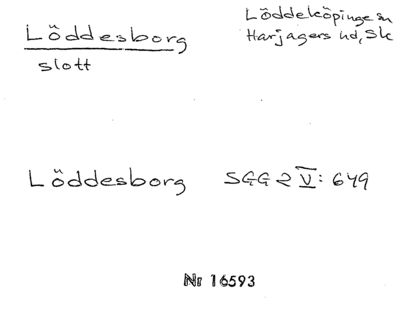 Löddesborg
slott
Löddeköpinge sn
Harjagers hd, Sk
Löddesborg SGG 2 V: 649
Nr 16593